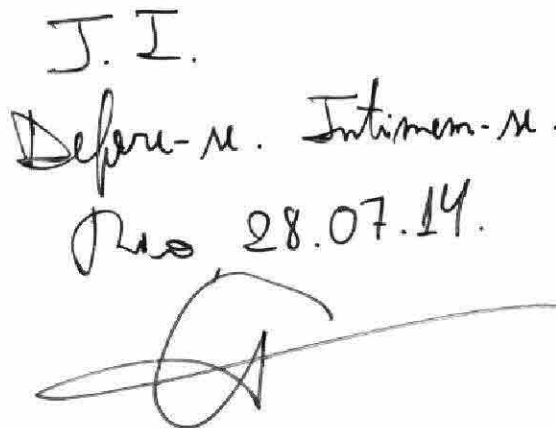 J. I.
Defere-se. Intimem-se.
Rio 28.07.14.